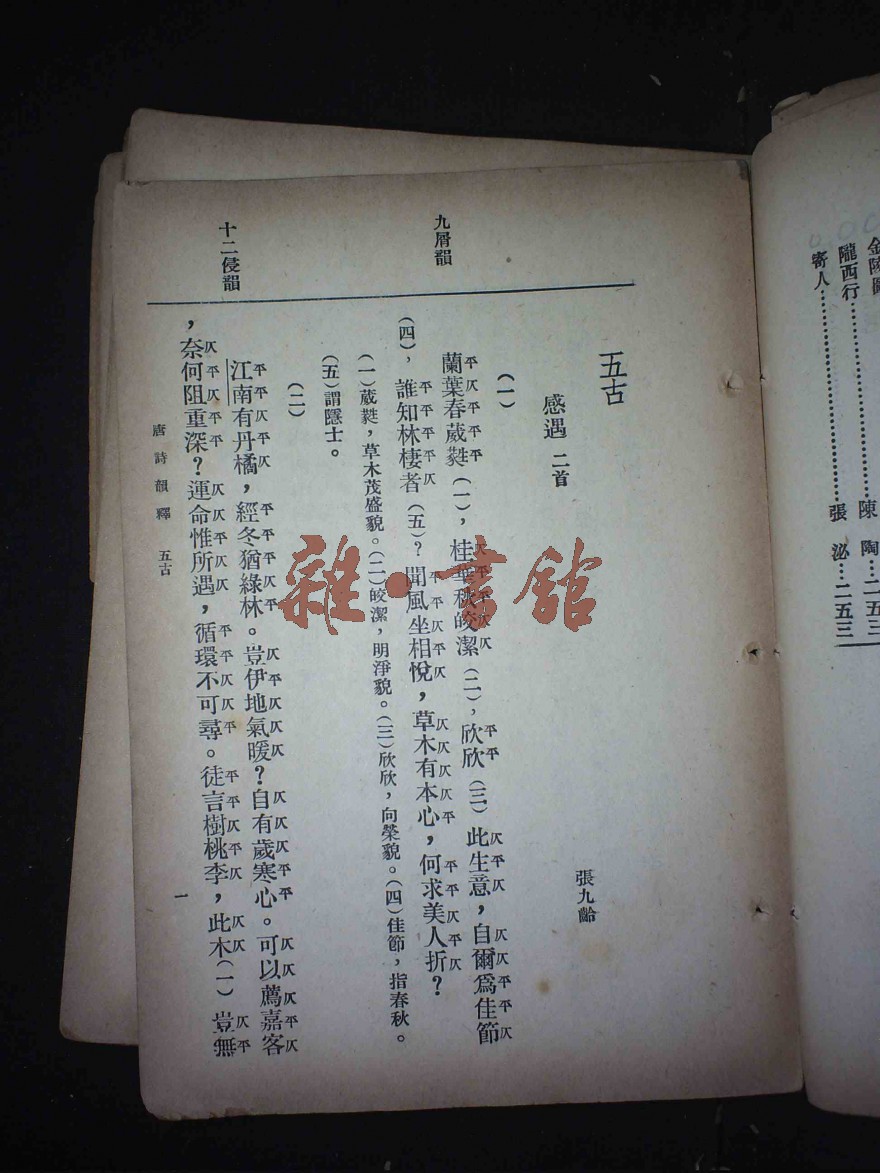 金陵圖
隴西行…………陳 陶…二五三
寄人…………張 泌…二五三
五古
感遇 二首
張九齡
(一)
九屑韻
蘭葉春葳蕤(一),桂華秋皎潔(二),欣欣(三)此生意,自爾爲佳節
(四),誰知林棲者(五)?聞風坐相悅,草木有本心,何求美人折?
(一)葳蕤,草木茂盛貌。(二)皎潔,明淨貌。(三)欣欣,向榮貌。(四)佳節,指春秋。
(五)謂隱士。
(二)
十二侵韻
江南有丹橘,經冬猶綠林。豈伊地氣暖?自有歲寒心。可以薦嘉客
,奈何阻重深?運命惟所遇,循環不可尋。徒言樹桃李,此木(一)豈無
唐詩韻釋 五古
一
雜·書舘